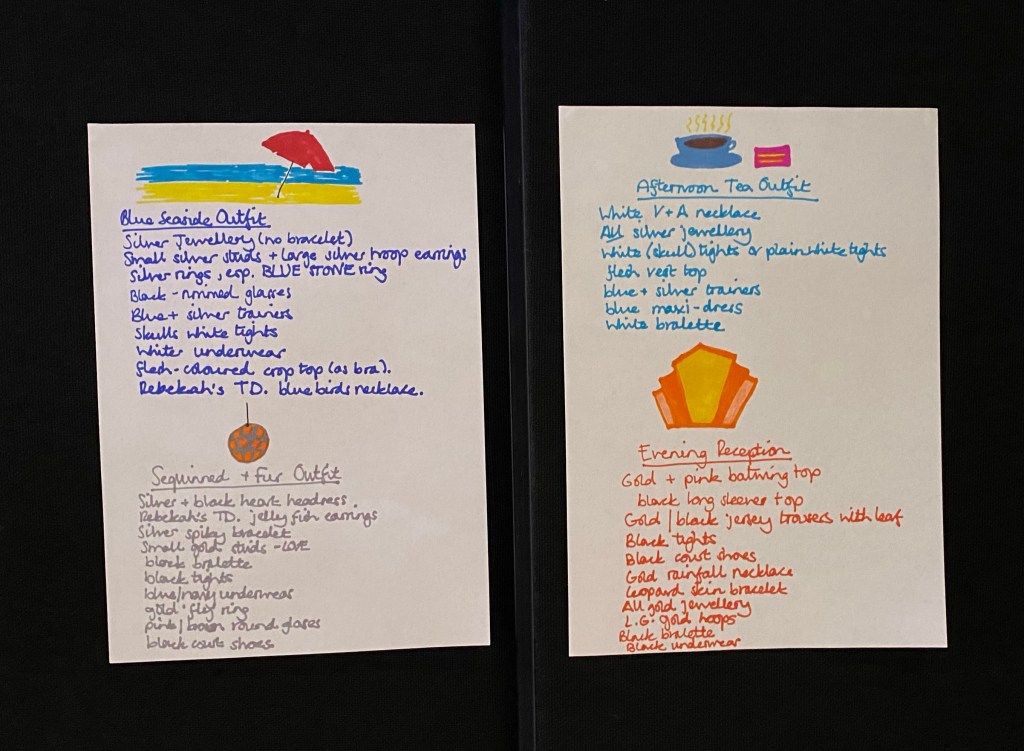 Blue Seaside Outfit
Silver Jewellery (no bracelet)
Small silver studs + large silver hoop earrings
Silver rings, esp. BLUE STONE ring
Black-rimmed glasses
Blue + silver trainers
Skulls white tights
White underwear
flesh-coloured crop top (as bra).
Rebekah's TD. blue birds necklace.
Sequinned + Fur Outfit
Silver + black heart headress.
Rebekah's TD. jelly fish earrings
Silver spikey bracelet
Small gold studs - LOVE
black bralette
black tights
blue/navy underwear
gold fly ring
pink/brown round glasses
black court shoes
Afternoon Tea Outfit
White V+A necklace
All silver jewellery
White (skull) tights or plain white tights
flesh vest top
blue + silver trainers
blue maxi-dress
White bralette
Evening Reception
Gold + pink batwing top
black long sleeve top
Gold/black jersey trousers with leaf
Black tights
Black court shoes
Gold rainfall necklace
leopard skin bracelet
All gold jewellery
L.G. gold hoops
Black bralette
Black underwear